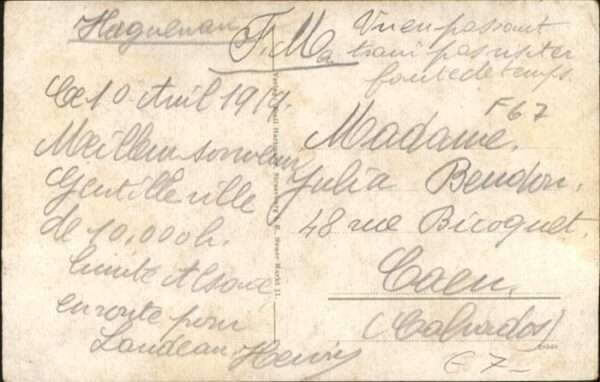 Haguenau
F.M.
Vu en passant
mais pas visiter
faute de temps.
Le 10 Avril 1919.
Meilleur souvenir
Gentille ville
de 10,000 h.
limite Alsace
en route pour
Landeau Henry
F67
Madame
Julia Bendon.
48 rue Bicoquet.
Caen.
(Calvados)
E7-